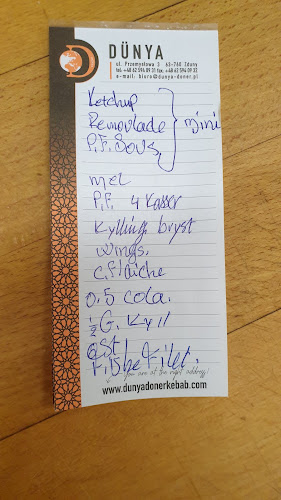 DÜNYA
ul. Przemysłowa 5 63-760 Zduny
tel. +48 62 594 09 31 fax. +48 62 594 09 32
e-mail: biuro@dunya-doner.pl
Ketchup
Remoulade } mini
P.F. Sous
mel
P.F. 4 Kasser
Kylling bryst
wings.
0.5 cola.
½ G. Kyll
OST
Fiske Filet.
you are at the right address!
www.dunyadonerkebab.com